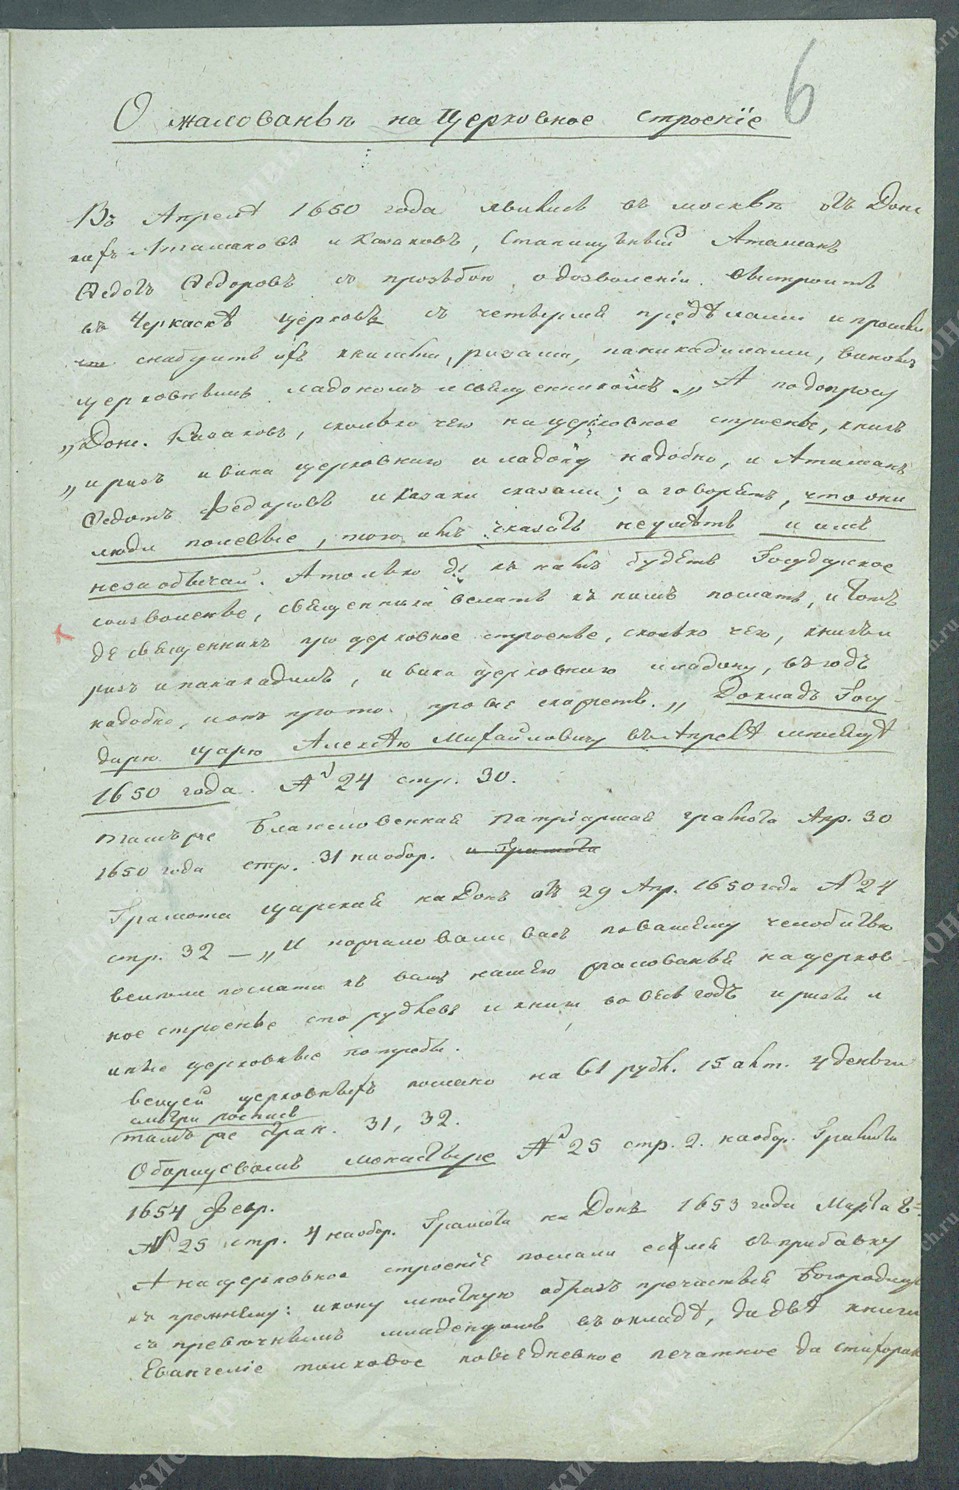 6
О жалованьѣ на Церковное строенiе
Въ Апрелѣ 1650 года явились въ москвѣ отъ Донс
кихъ Атамановъ и Казаковъ, Станишный Атаманъ
Ѳедотъ Ѳедоровъ съ прозьбою о дозволенiи выстроить
въ Черкаскѣ церковь съ четырмя предѣлами и просили
снабдить ихъ книгами, ризами, паникадилами, виномъ
церковнымъ ладономъ и священникомъ. „А по допросу
„Донс. Казаковъ, сколько чего на церковное строенье, книгъ
„и ризъ и вина церковного и ладону надобно, и Атаманъ
Ѳедотъ Федоровъ и казаки сказали; а говорятъ, что они
люди полевые, того имъ сказать неумѣть и имъ
незаобычай. А только де къ намъ будетъ Государское
соизволенье, священника велитъ къ нимъ послать, и тотъ
де священникъ про церковное строенье, сколько чего, книгъ и
ризъ и паникадилъ, и вина церковного и ладону, въ годъ
надобно, и онъ про то про все скажетъ. „ Докладъ Госу
дарю царю Алексѣю Михайловичу въ Апрелѣ месяцѣ
1650 года. № 24 стр. 30.
тамъ же Благословенная Патрiаршая грамота Апр. 30
1650 года стр. 31 на обор. и Грамота
Грамота царская на Донъ отъ 29 Апр. 1650 года № 24
стр. 32 — „И пожаловали васъ по вашему челобитью
велели послати къ вамъ нашего жалованья на церков
ное строенье сто рублевъ и книги во весь годъ и ризы и
иные церковные потребы.
вещей церковныхъ послано на 61 рубл. 15 алт. 4 деньги
смотри роспись
тамъ же стран. 31, 32.
О Борщевомъ монастыре № 25 стр. 2. на обор. Грамота
1654 февр.
№ 25 стр. 4 на обор. Грамота на Донъ 1653 года Марта 2
А на церковное строенiе послали есмя въ прибавку
къ прежнему: икону местную образъ пречистыя Богородицы
съ превечнымъ младенцомъ въ окладѣ, да двѣ книги
Евангелiе толковое повседневное печатное да стихорал